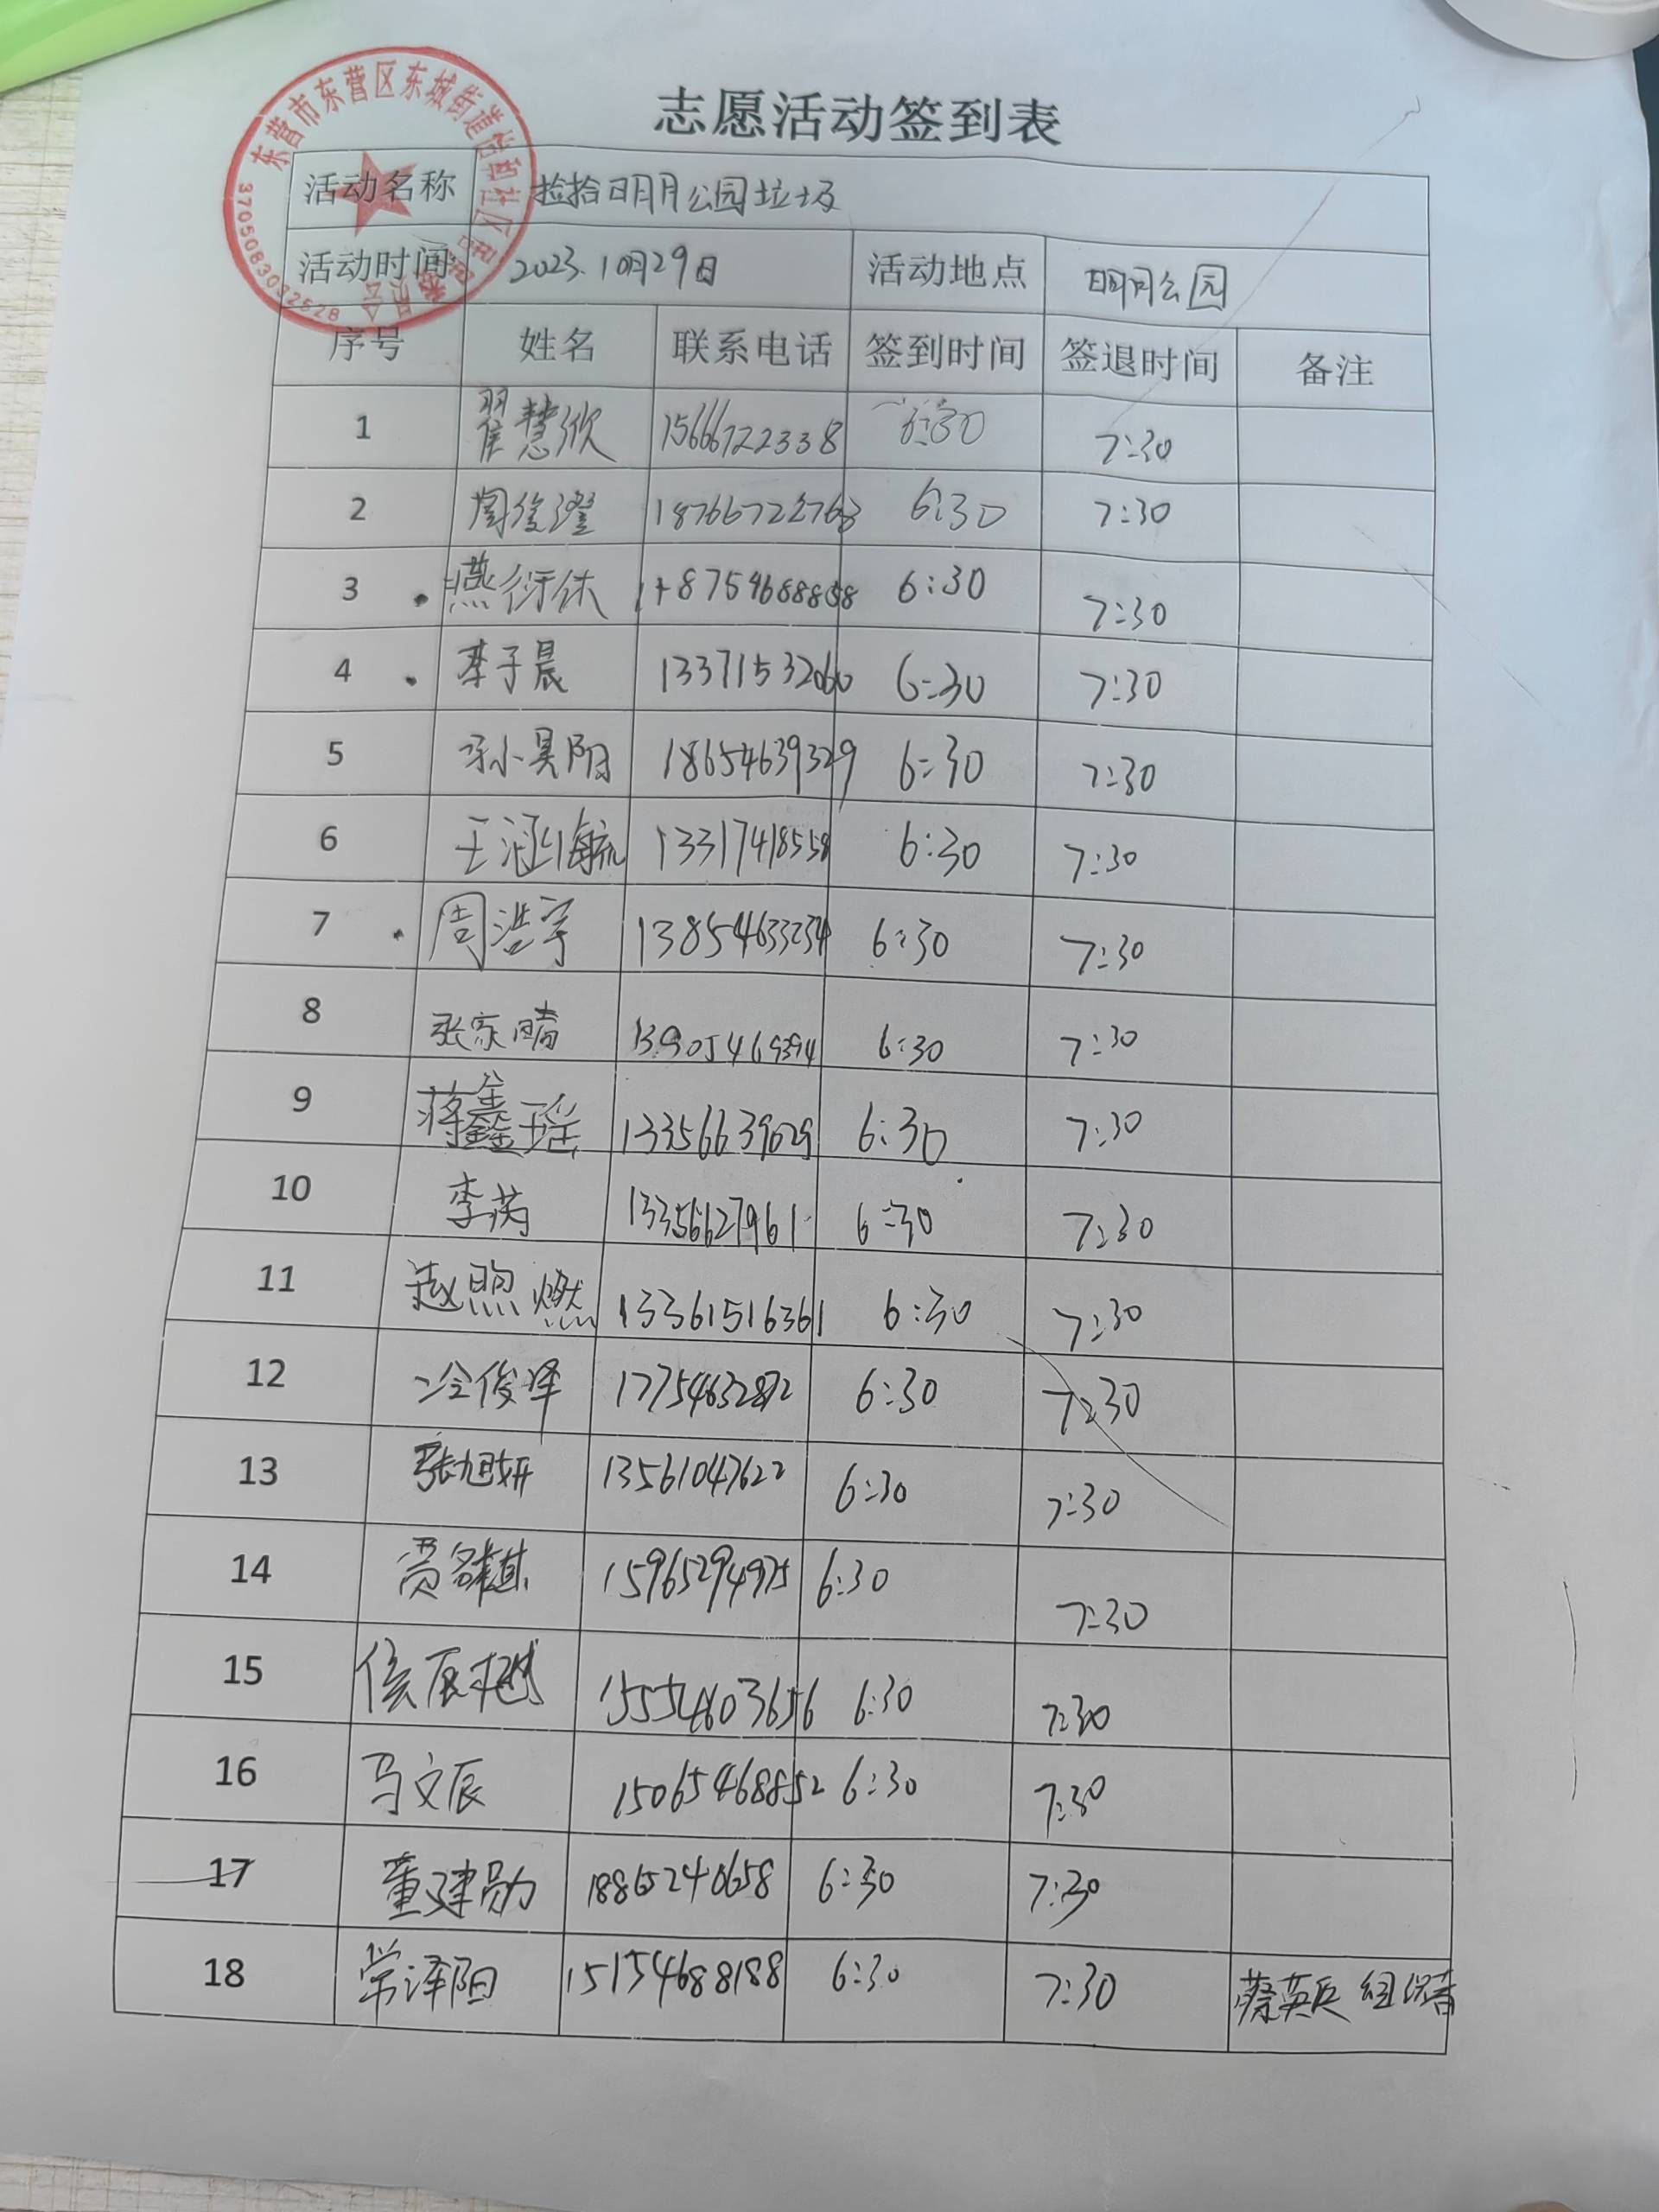 志愿活动签到表
东营市东营区东城街道怡和社区居民委员会
3705083032628
活动名称 捡拾明月公园垃圾
活动时间 2023.10月29日 活动地点 明月公园
序号 姓名 联系电话 签到时间 签退时间 备注
1 翟慧欣 15666722338 6:30 7:30
2 周俊澄 18766722768 6:30 7:30
3 燕衍休 6:30 7:30
4 李子晨 13371532060 6:30 7:30
5 孙昊阳 18654639329 6:30 7:30
6 王涵毓 13317418558 6:30 7:30
7 周浩宇 13854633234 6:30 7:30
8 张家晴 13905469394 6:30 7:30
9 蒋鑫瑶 13356639029 6:30 7:30
10 李芮 13356627961 6:30 7:30
11 赵煦燃 13361516361 6:30 7:30
12 冷俊泽 17754632872 6:30 7:30
13 张旭妍 13561047622 6:30 7:30
14 15965294975 6:30 7:30
15 侯辰越 15554603656 6:30 7:30
16 马文辰 15065468852 6:30 7:30
17 董建勋 18865240658 6:30 7:30
18 常泽阳 15154688188 6:30 7:30 蔡英兵 组织者